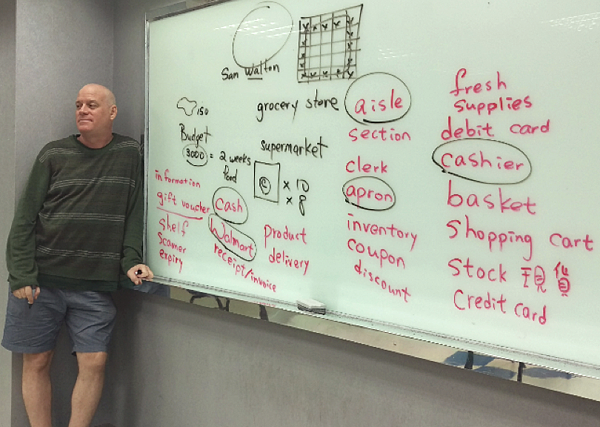 San Walton
150
grocery store
Budget
3000 = 2 weeks
food
supermarket
x 10
x 8
information
gift voucher
Shelf
Scanner
expiry
cash
Walmart
receipt/invoice
product
delivery
aisle
section
clerk
apron
inventory
coupon
discount
fresh
supplies
debit card
cashier
basket
Shopping cart
Stock 現貨
Credit card